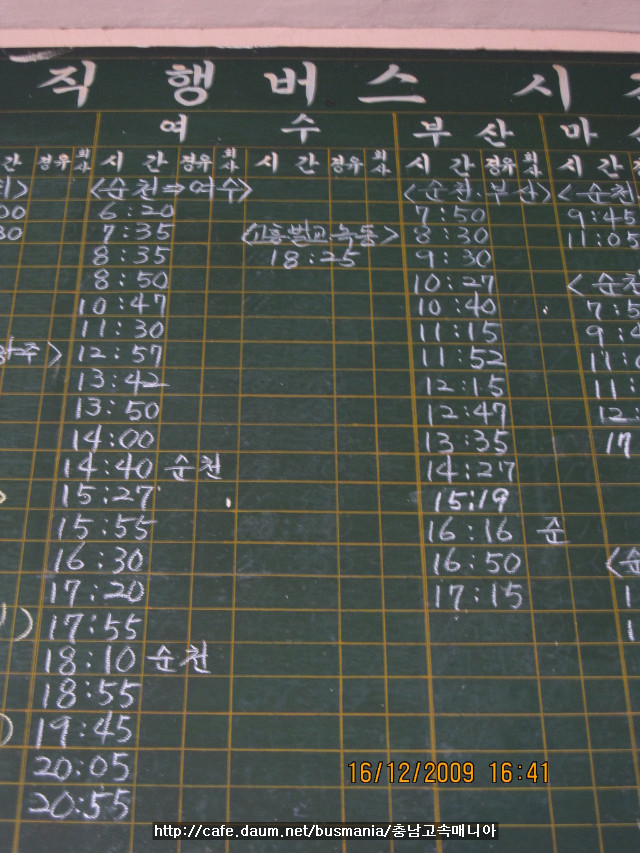 직 행 버 스 시
여 수 부 산 마
간 경유 회사 시 간 경유 회사 시 간 경유 회사 시 간 경유 회사 시 간
<순천⇒여수> <순천·부산> <순천
00 6:20 7:50 9:45
30 7:35 <고흥·벌교·녹동> 8:30 11:05
8:35 18:25 9:30
8:50 10:27 <순천
10:47 10:40 7:5
11:30 11:15 9:4
> 12:57 11:52 11:0
13:42 12:15 11:
13:50 12:47 12:
14:00 13:35 17
14:40 순천 14:27
15:27 15:19
15:55 16:16 순
16:30 16:50 <순
17:20 17:15 1
17:55 1
18:10 순천
18:55
19:45
20:05
20:55
16/12/2009 16:41
http://cafe.daum.net/busmania/충남고속매니아